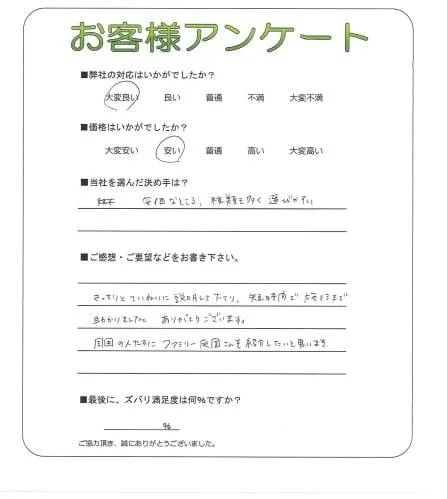 お客様アンケート
■弊社の対応はいかがでしたか？
大変良い 良い 普通 不満 大変不満
■価格はいかがでしたか？
大変安い 安い 普通 高い 大変高い
■当社を選んだ決め手は？
安価なところ、種類も多く 選びやすい
■ご感想・ご要望などをお書き下さい。
きっちりと ていねいに 説明して下さり、短時間で 施工まで
助かりました。 ありがとうございます。
周囲の人たちに ファミリー庭園さんを 紹介したいと思います。
■最後に、ズバリ満足度は何%ですか？
%
ご協力頂き、誠にありがとうございました。